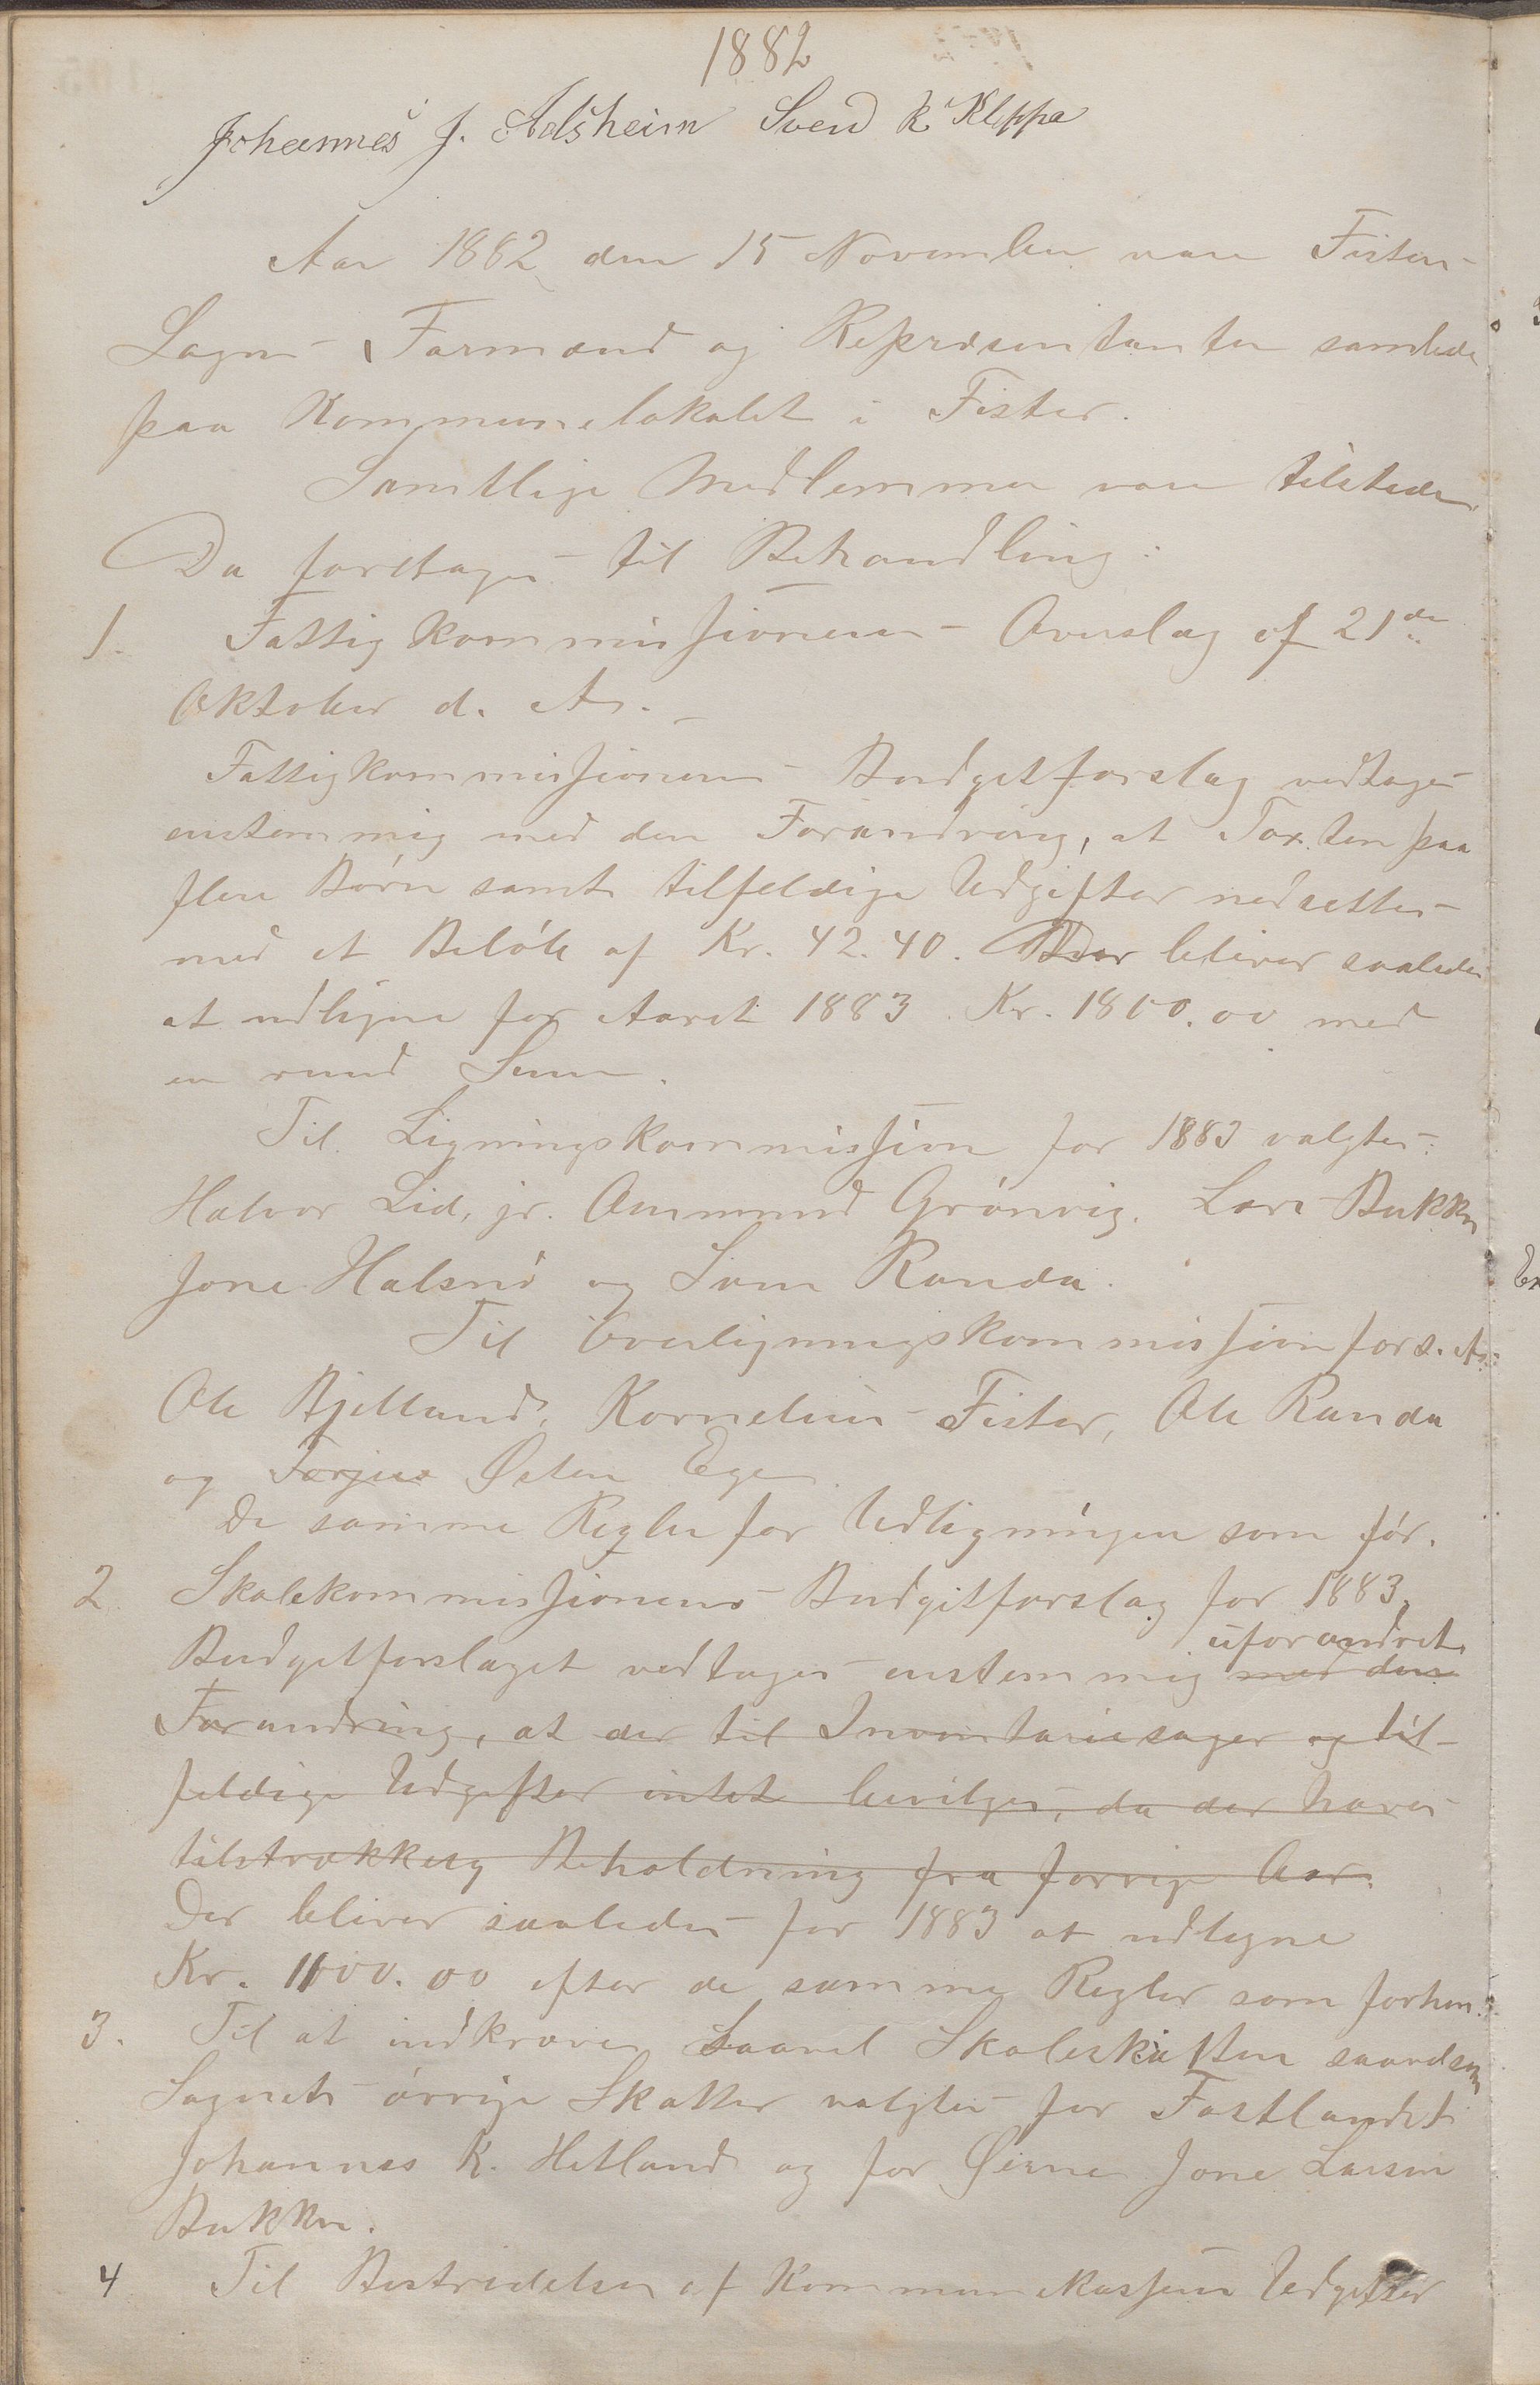 1882
Johannes J. Adsheim Svend K Kleppa
Aar 1882 den 15 November vare Fister
Sogns Formænd og Repræsentanter samlede
paa Kommunelokalet i Fister.
Samtlige Medlemmer vare tilstede.
Da foretages til Behandling:
1. Fattigkommissionens Overslag af 21de
Oktober d. A.
Fattigkommissionens Budgetforslag vedtages
enstemmig med den Forandring, at Taxten paa
flere Børn samt tilfeldige Udgifter nedsettes
med et Beløb af Kr. 42.40. Der bliver saaledes
at udligne for Aaret 1883 Kr. 1800.00 med
en rund Sum.
Til Ligningskommission for 1883 valgtes:
Halvor Lid, jr. Aummund Grønvig. Lars Bukkn
Jone Halsnø og Sven Randa.
Til Overligningskommission for s. A.:
Ole Bjelland, Kornelius Fister, Ole Randa
og Torjus Østen Ege
De samme Regler for Udligningen som før.
2 Skolekommissionens Budgetforslag for 1883.
uforandret
Budgetforslaget vedtages enstemmig med den
Forandring, at der til Inventariesager og til-
feldige Udgifter intet bevilges, da der haves
tilstrækkelig Beholdning fra forrige Aar.
Der bliver saaledes for 1883 at udligne
Kr. 1100.00 efter de samme Regler som forhen.
3. Til at indkræve saavel Skoleskatten saavelsom
Sognets øvrige Skatter valgtes for Fastlandet
Johannes K. Hetland og for Øerne Jone Larsen
Bukken.
4 Til Bestridelsen af Kommunekassens Udgifter